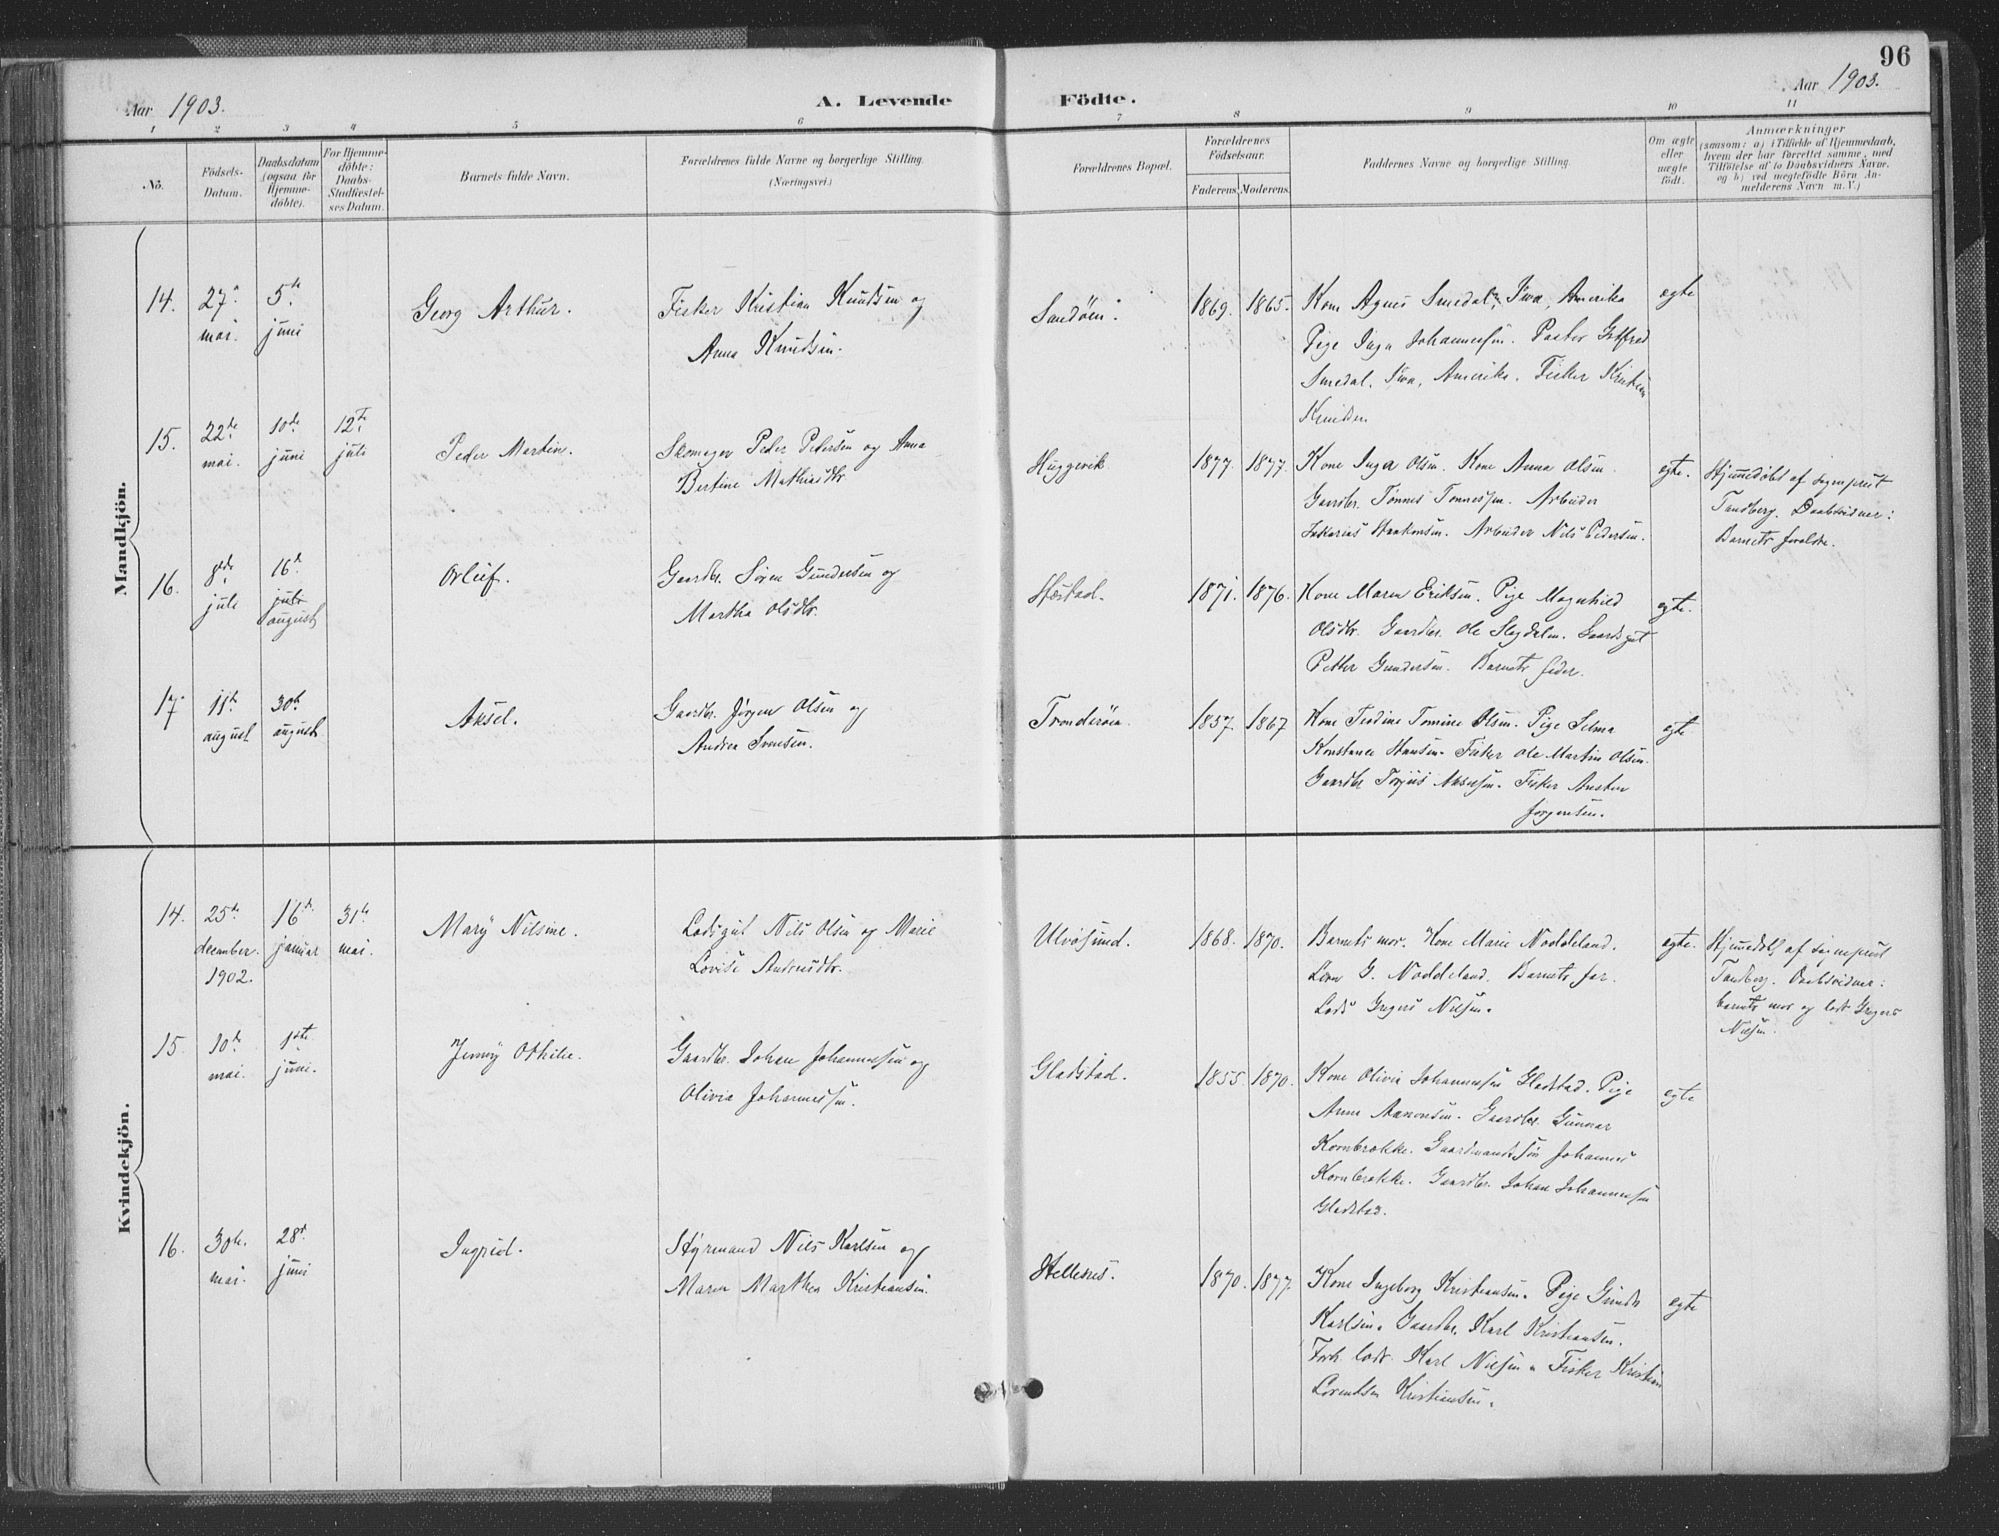 96
Aar 1903.
A. Levende Födte.
Aar 1903.
1 2 3 4 5 6 7 8 9 10 11
No.
Födsels-
Datum.
Daabsdatum
(ogsaa for
Hjemme-
döbte).
For Hjemme-
döbte:
Daabs-
Stadfæstel-
ses Datum.
Barnets fulde Navn.
Forældrenes fulde Navne og borgerlige Stilling.
(Næringsvei.)
Forældrenes Bopæl.
Forældrenes
Födselsaar.
Faderens. Moderens.
Faddernes Navne og borgerlige Stilling.
Om ægte
eller
uægte
födt.
Anmærkninger
(saasom: a) i Tilfælde af Hjemmedaab,
hvem der har forrettet samme, med
Tilföielse af to Daabsvidners Navne.
og b) ved uægtefödte Börn An-
melderens Navn m. V.)
Mandkjön.
14.
27de
mai.
5te
juni
Georg Arthur.
Fisker Kristian Knudsen og
Anna Knudsen.
Sandöen.
1869. 1865.
Kone Agnes Smedal, Iowa, Amerika
Pige Inga Johannessen. Pastor Gotfred
Smedal, Iowa, Amerika. Fisker Kristian
Knudsen
ægte
15.
22de
mai.
10de
juni
12te
juli
Peder Martin.
Skomager Peder Pedersen og Anna
Bertine Mathiasdtr
Huggevik
1877. 1877.
Kone Inga Olsen. Kone Anna Olsen.
Gaardbr. Tönnes Tönnessen. Arbeider
Sakarias Haakonsen. Arbeider Nils Pedersen.
ægte.
Hjemmedöbt af sognepræst
Tandberg. Daabsvidner:
Barnets forældre.
16.
8de
juli
16de
juli
august
Orluf.
Gaardbr. Sören Gundersen og
Martha Olsdtr.
Höstad.
1871. 1876.
Kone Maren Eriksen. Pige Magnhild
Olsdtr. Gaardbr. Ole Slogdalen. Gaardsgut
Petter Gundersen. Barnets fader.
ægte.
17.
11te
august
30te
august
Aksel.
Gaardbr. Jörgen Olsen og
Andrea Svensen.
Trondersöen.
1857. 1867
Kone Tomine Olsen. Pige Selma
Konstance Hansen. Fisker Ole Martin Olsen.
Gaardbr Torjus Aanensen. Fisker
Jörgensen.
ægte
Kvindekjön.
14.
25de
december.
1902.
16de
januar
31te
mai.
Mary Nilsine.
Lodsgut Nils Olsen og Marie
Lovise Andreasdtr.
Ulvösund.
1868. 1870.
Barnets mor. Kone Marie Noddeland.
G. Noddeland. Barnets far.
Lods Gregers Nielsen.
ægte.
Hjemmedöbt af sognepræst
Tandberg. Daabsvidner:
barnets mor og lods Gregers
Nielsen.
15.
10de
mai.
1ste
juni.
Jenny Othilie.
Gaardbr. Johan Johannessen og
Olivia Johannessen.
Gladstad.
1855. 1870.
Kone Olivia Johannessen Gladstad. Pige
Anne Aanonsen. Gaardbr. Gunnar
Kornbrække. Gaardmandssön Johannes
Kornbrække. Gaardbr. Johan Johannessen
Gladstad.
ægte
16.
30te
mai.
28de
juni
Ingrid.
Styrmand Nils Karlsen og
Maren Marthea Kristiansen.
Hellesnes.
1870. 1877.
Kone Ingeborg Kristiansen. Pige Gunda
Karlsen. Gaardbr. Karl Kristiansen.
Forh. lods. Karl Nielsen. Fisker Kristian
Lorentsen Kristiansen.
ægte